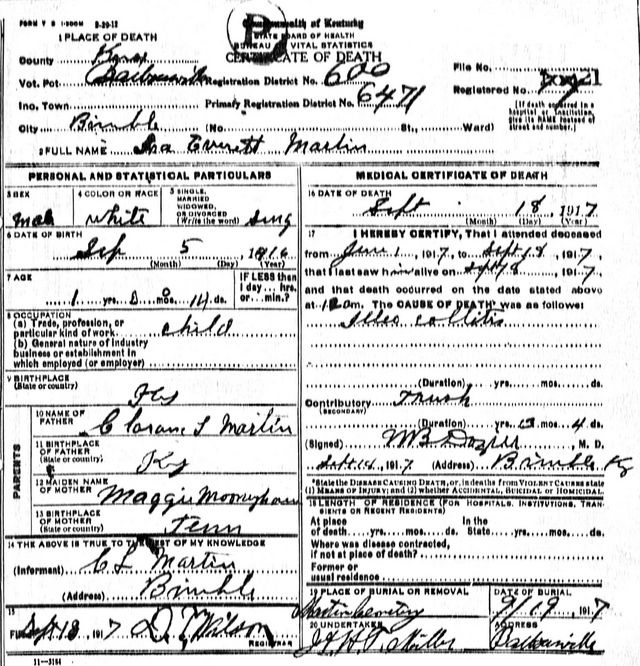 FORM V S 1-500M 9-20-12
Commonwealth of Kentucky
STATE BOARD OF HEALTH
BUREAU VITAL STATISTICS
CERTIFICATE OF DEATH
1 PLACE OF DEATH
County Knox
Vot. Pct Barbourville Registration District No. 600 File No.
Inc. Town Primary Registration District No. 6471 Registered No. 21
City Bimble (No. St., Ward)
[If death occurred in a hospital or institution, give its NAME instead of street and number.]
2 FULL NAME Ira Everett Martin
PERSONAL AND STATISTICAL PARTICULARS
3 SEX Male
4 COLOR OR RACE white
5 SINGLE, MARRIED WIDOWED, OR DIVORCED (Write the word) Sing
6 DATE OF BIRTH
Sep 5, 1916
(Month) (Day) (Year)
7 AGE
1 yrs. 0 mos. 14 ds.
IF LESS than 1 day... hrs. or... min.?
8 OCCUPATION
(a) Trade, profession, or particular kind of work child
(b) General nature of industry business or establishment in which employed (or employer)
9 BIRTHPLACE (State or country) Ky
PARENTS
10 NAME OF FATHER L Martin
11 BIRTHPLACE OF FATHER (State or country) Ky
12 MAIDEN NAME OF MOTHER Maggie
13 BIRTHPLACE OF MOTHER (State or country) Tenn
14 THE ABOVE IS TRUE TO THE BEST OF MY KNOWLEDGE
(Informant) C L Martin
(Address) Bimble
15
Filed Sept 18, 1917 Wilson
REGISTRAR
11-3184
MEDICAL CERTIFICATE OF DEATH
16 DATE OF DEATH
Sept 18, 1917
(Month) (Day) (Year)
17 I HEREBY CERTIFY, That I attended deceased
from June 1, 1917, to Sept 18, 1917,
that I last saw him alive on Sept 8, 1917,
and that death occurred on the date stated above
at m. The CAUSE OF DEATH* was as follows:
Ileo collitis
(Duration) yrs. mos. ds.
Contributory Thrush
(SECONDARY)
(Duration) yrs. mos. 4 ds.
(Signed) W B Dozier, M. D.
Sept 14, 1917 (Address) Bimble Ky
*State the DISEASE CAUSING DEATH, or, in deaths from VIOLENT CAUSES state
(1) MEANS OF INJURY; and (2) whether ACCIDENTAL, SUICIDAL or HOMICIDAL.
18 LENGTH OF RESIDENCE (FOR HOSPITALS, INSTITUTIONS, TRANSIENTS OR RECENT RESIDENTS)
At place of death yrs. mos. ds. In the State yrs. mos. ds.
Where was disease contracted,
if not at place of death?
Former or
usual residence
19 PLACE OF BURIAL OR REMOVAL Martin Cemetery
DATE OF BURIAL 9/19, 1917
20 UNDERTAKER Miller
ADDRESS Barbourville